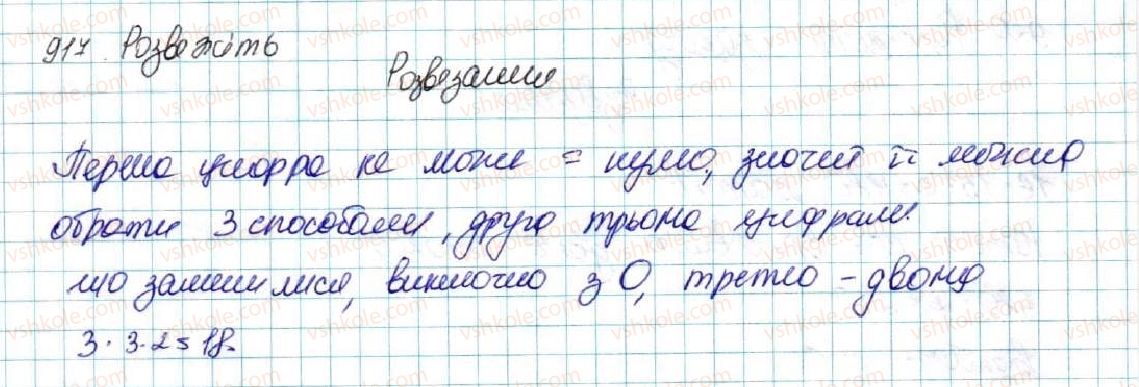 917. Розв'яжіть
Розвезання
Перша цифра не може = нулю, значит її можна
обрати 3 способами, друга трьома цифрами
що залишилися, виключно з 0, третю - двома
3 · 3 · 2 = 18.